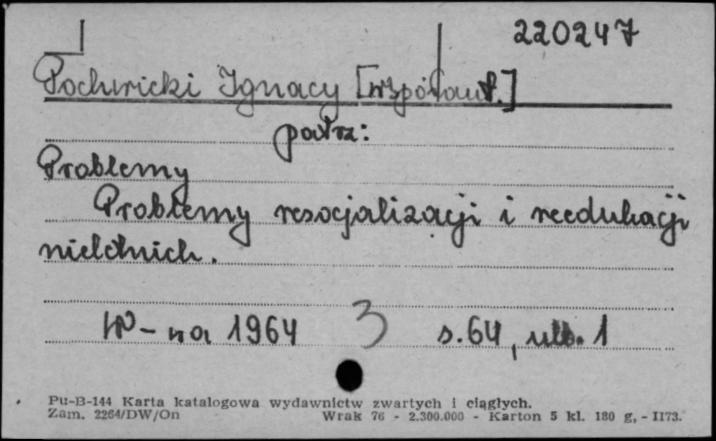 220247
Pochwicki Ignacy [współaut.]
patrz:
Problemy
Problemy resocjalizacji i reedukacji
nieletnich.
W-wa 1964 3 s.64, nlb. 1
Pu-B-144 Karta katalogowa wydawnictw zwartych i ciągłych.
Zam. 2264/DW/On Wrak 76 - 2.300.000 - Karton 5 kl. 180 g, - II73.